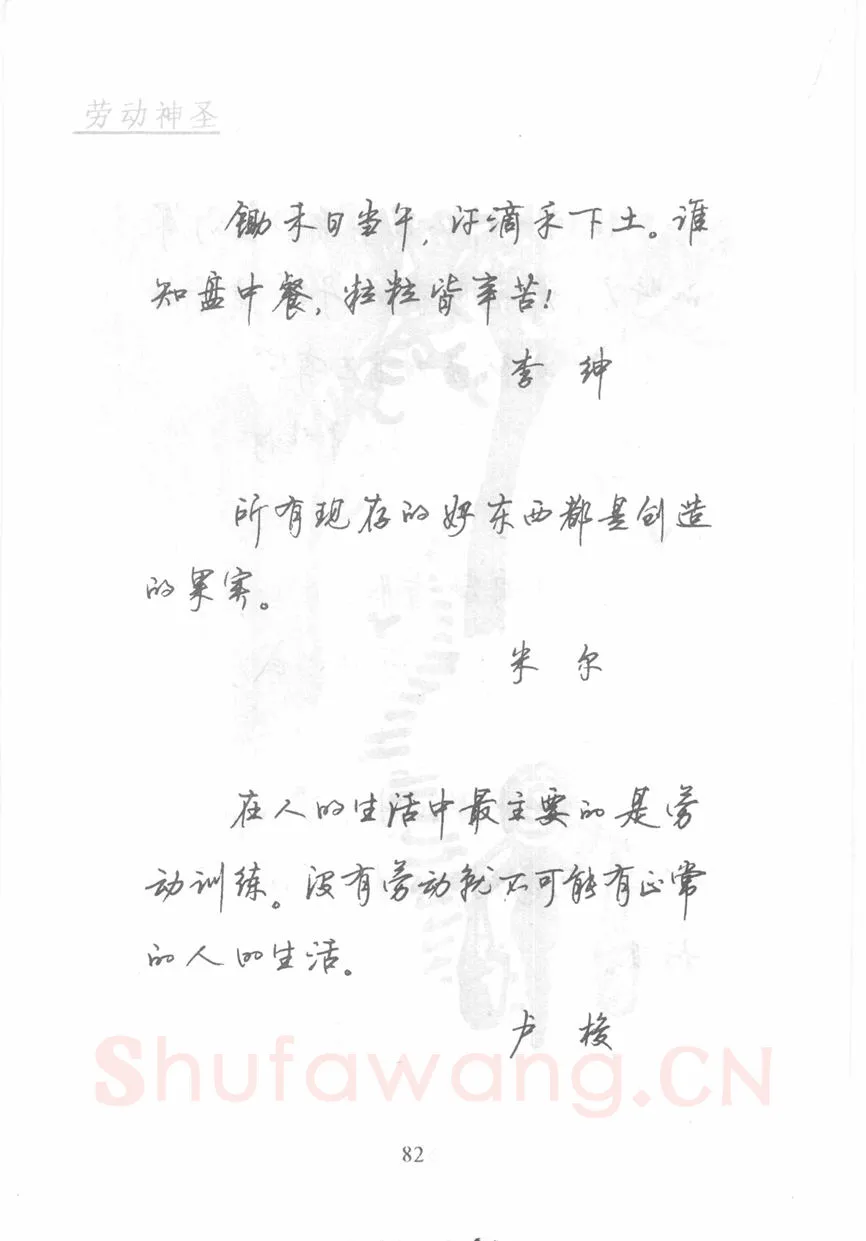 劳动神圣
锄禾日当午，汗滴禾下土。谁
知盘中餐，粒粒皆辛苦！
李 绅
所有现存的好东西都是创造
的果实。
米 尔
在人的生活中最主要的是劳
动训练。没有劳动就不可能有正常
的人的生活。
卢 梭
Shufawang.CN
82